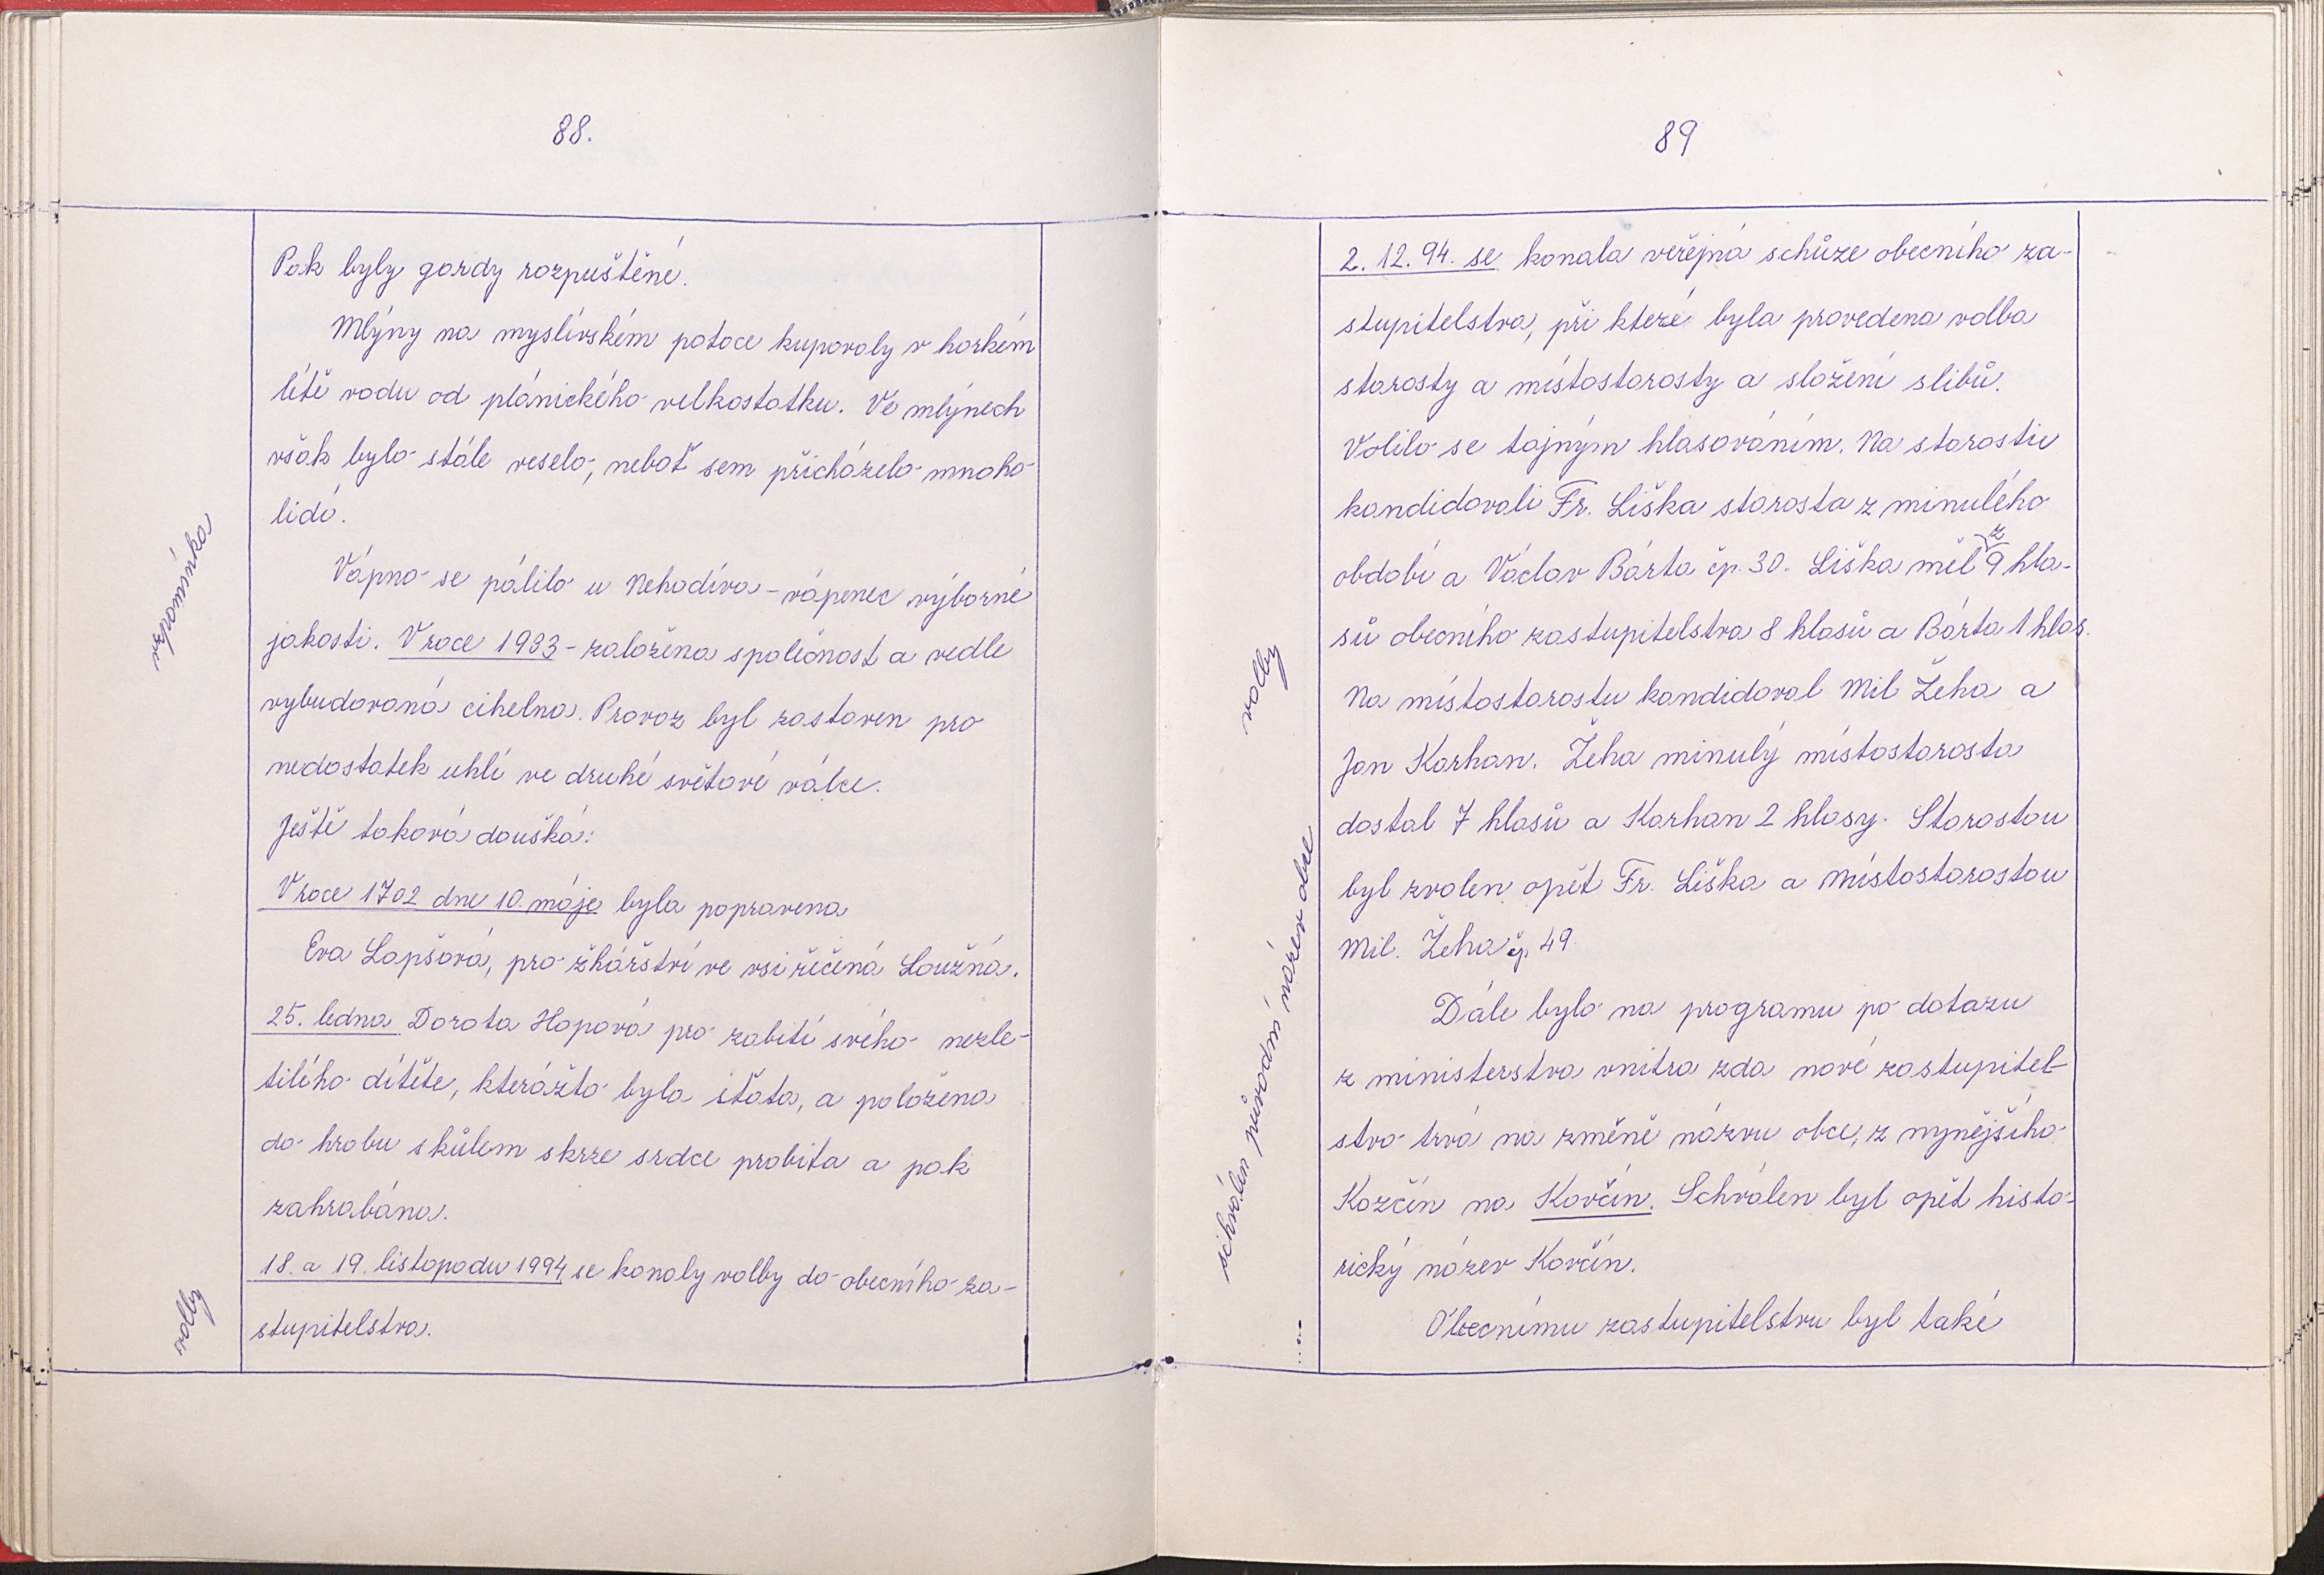 88.
Pak byly gardy rozpuštěné.
Mlýny na myslívském potoce kupovaly v horkém
létě vodu od plánického velkostatku. Ve mlýnech
však bylo stále veselo, neboť sem přicházelo mnoho
lidí.
vzpomínka
Vápno se pálilo u Nehodíva - vápenec výborné
jakosti. V roce 1933 - založena společnost a vedle
vybudovaná cihelna. Provoz byl zastaven pro
nedostatek uhlí ve druhé světové válce.
Ještě taková douška:
V roce 1702 dne 10. máje byla popravena
Eva Lapšová, pro žhářství ve vsi řečená Loužná.
25. ledna Dorota Hopová pro zabití svého nezle-
tilého dítěte, kterážto byla sťata, a položena
do hrobu s kůlem skrze srdce probita a pak
zahrabána.
18. a 19. listopadu 1994 se konaly volby do obecního za-
stupitelstva.
volby
89
2. 12. 94. se konala veřejná schůze obecního za-
stupitelstva, při které byla provedena volba
starosty a místostarosty a složení slibů.
Volilo se tajným hlasováním. Na starostu
kandidovali Fr. Liška starosta z minulého
období a Václav Bárta čp. 30. Liška měl z 9 hla-
sů obecního zastupitelstva 8 hlasů a Bárta 1 hlas.
volby
Na místostarostu kandidoval Mil Žeha a
Jan Karhan. Žeha minulý místostarosta
dostal 7 hlasů a Karhan 2 hlasy. Starostou
byl zvolen opět Fr. Liška a místostarostou
Mil. Žeha čp. 49.
Dále bylo na programu po dotazu
z ministerstva vnitra zda nové zastupitel-
stvo trvá na změně názvu obce, z nynějšího
Kozčín na Kovčín. Schválen byl opět histo-
rický název Kovčín.
schválen původní název obce
Obecnímu zastupitelstvu byl také